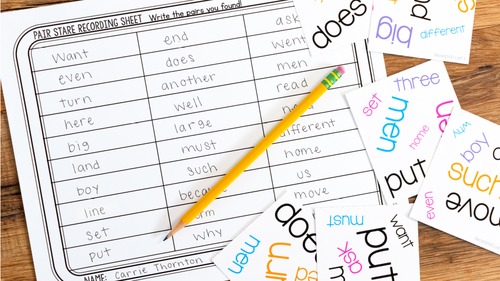 PAIR STARE RECORDING SHEET Write the pairs you found!
want end ask
even does went
turn another men
here well read
big large
land must different
boy such home
line us
set move
put why
NAME: Carrie Thornton
does
big different
set three
men
home
put
why
boy
such
even move
does
men
must
want
put
ask